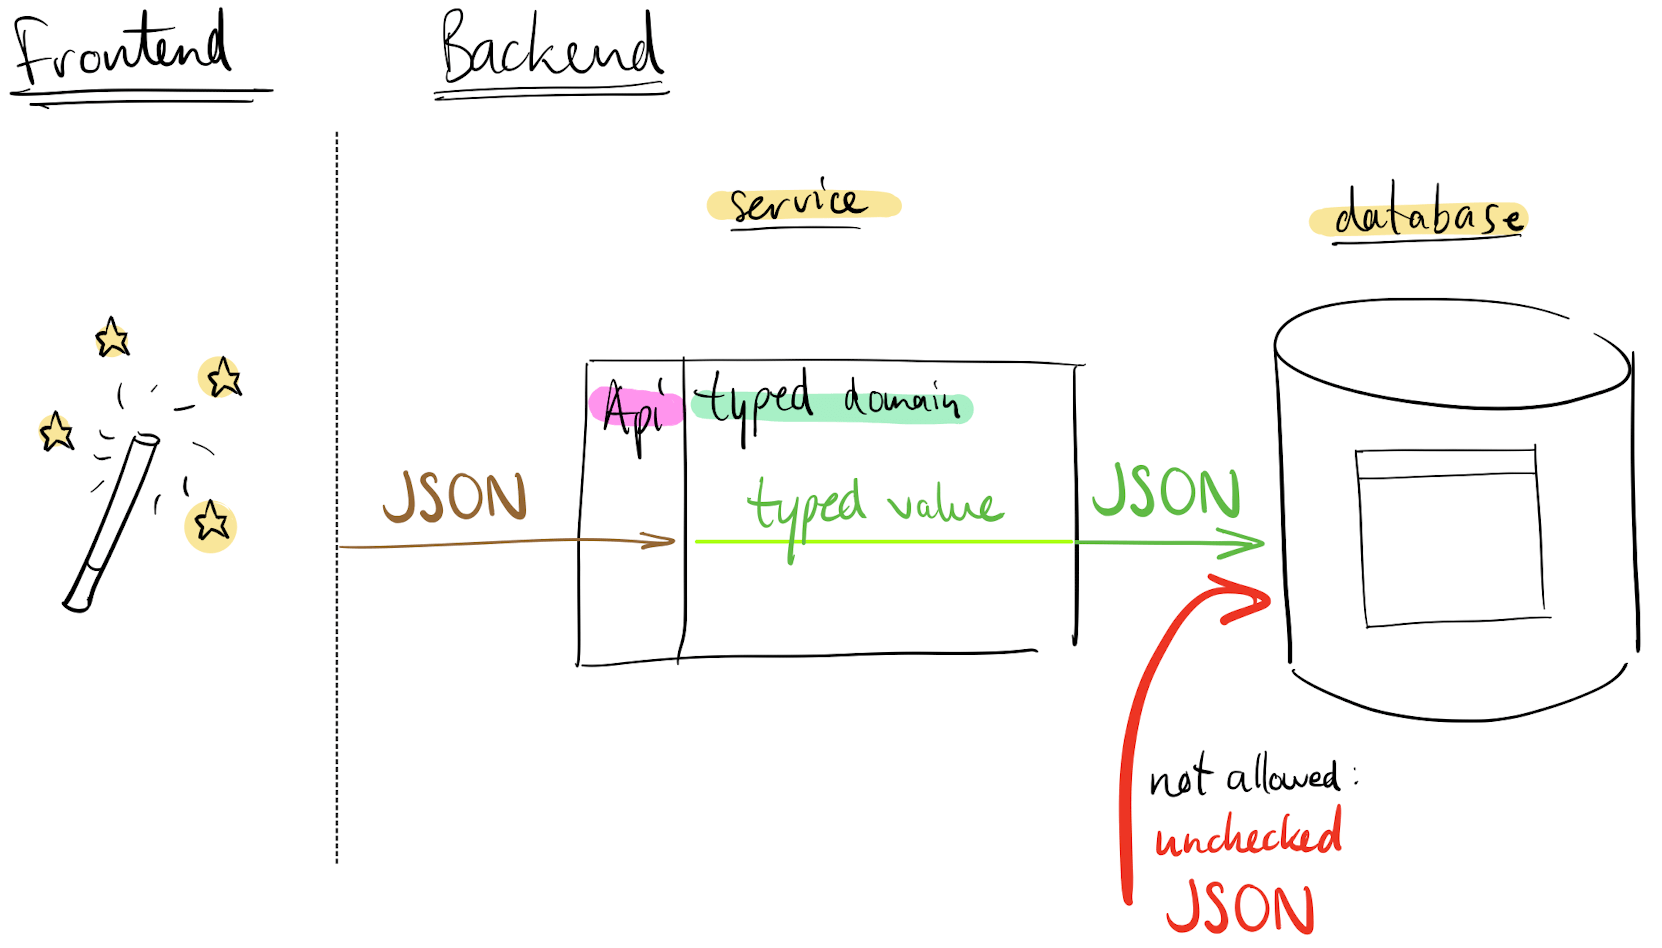 Frontend
Backend
service
database
Api
typed domain
JSON
typed value
JSON
not allowed:
unchecked
JSON